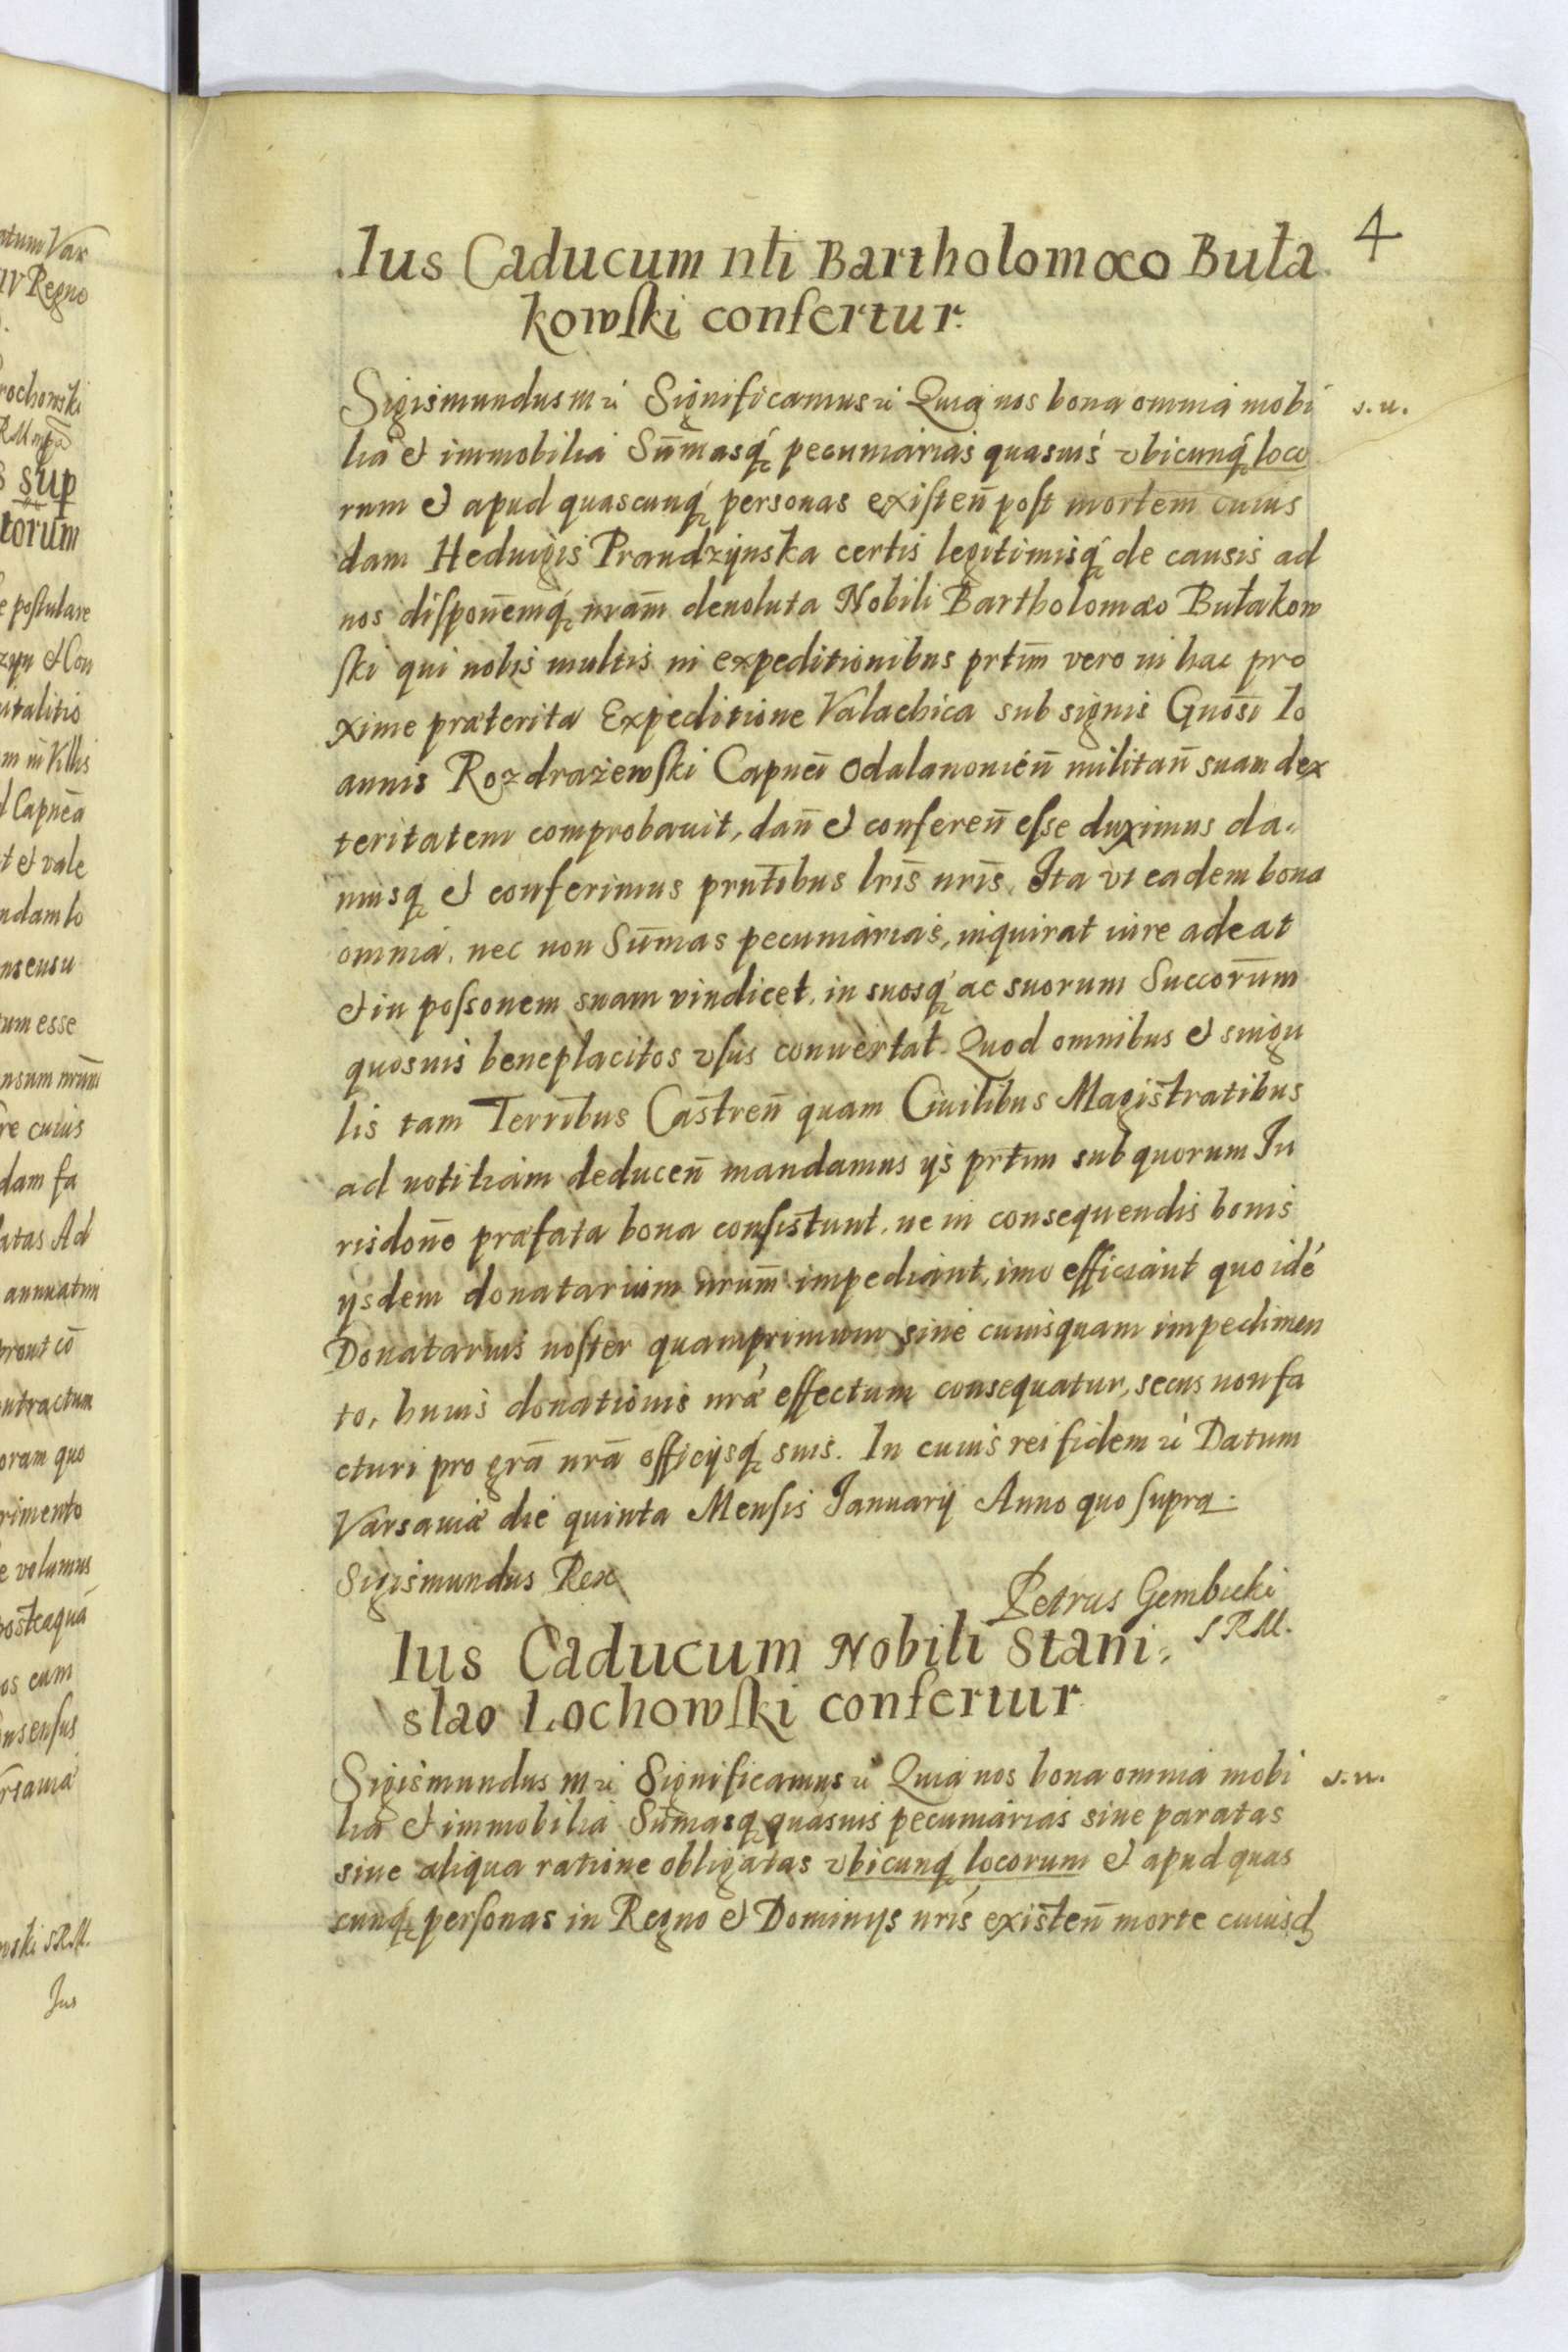 4
Ius Caducum nłi Bartholomæo Buła
kowski confertur.
Sigismundus III &c Significamus &c Quia nos bona omnia mobi
s. n.
lia et immobilia Sūmasq́ pecuniarias quasuis vbicunq́ loco
rum et apud quascunq́ personas existeñ post mortem cuius
dam Heduigis Prandzynska certis legitimisq́ de causis ad
nos dispoñemq́ nram̄ deuoluta Nobili Bartholomæo Bułakow
ski qui nobis multis in expeditionibus prtim̄ vero in hac pro
xime præterita Expeditione Valachica sub signis Gnōsi Io
annis Rozdrażewski Capnēi Odalanonień militañ suam dex
teritatem comprobauit, dañ et confereñ esse duximus da-
musq́ et conferimus prntībus lrīs nrīs. Ita vt eadem bona
omnia, nec non Sūmas pecuniarias, inquirat iure adeat
et in possonem suam vindicet, in suosq́ ac suorum Succorūm
quosuis beneplacitos vsus conuertat. Quod omnibus et singu
lis tam Terrībus Castreñ quam Ciuilibus Magistratibus
ad notitiam deduceñ mandamus ijs prtīm sub quorum Iu
risdoñe præfata bona consistunt, ne in consequendis bonis
ijsdem donatarium nrum̄ impediant, imo efficiant quo idé
Donatarius noster quamprimum sine cuiusquam impedimen
to, huius donationis nræ effectum consequatur, secus non fa
cturi pro grā nrā officijsq́ suis. In cuius rei fidem &c Datum
Varsauiæ die quinta Mensis Ianuarij Anno quo supra.
Sigismundus Rex
Petrus Gembicki
S R M.
Ius Caducum Nobili Stani-
slao Lochowski confertur
Sigismundus III &c Significamus &c Quia nos bona omnia mobi
s. n.
lia et immobilia Sūmasq́ quasuis pecuniarias siue paratas
siue aliqua ratione obligatas vbicunq́ locorum et apud quas
cunq́ personas in Regno et Dominijs nrīs existeñ morte cuiusd